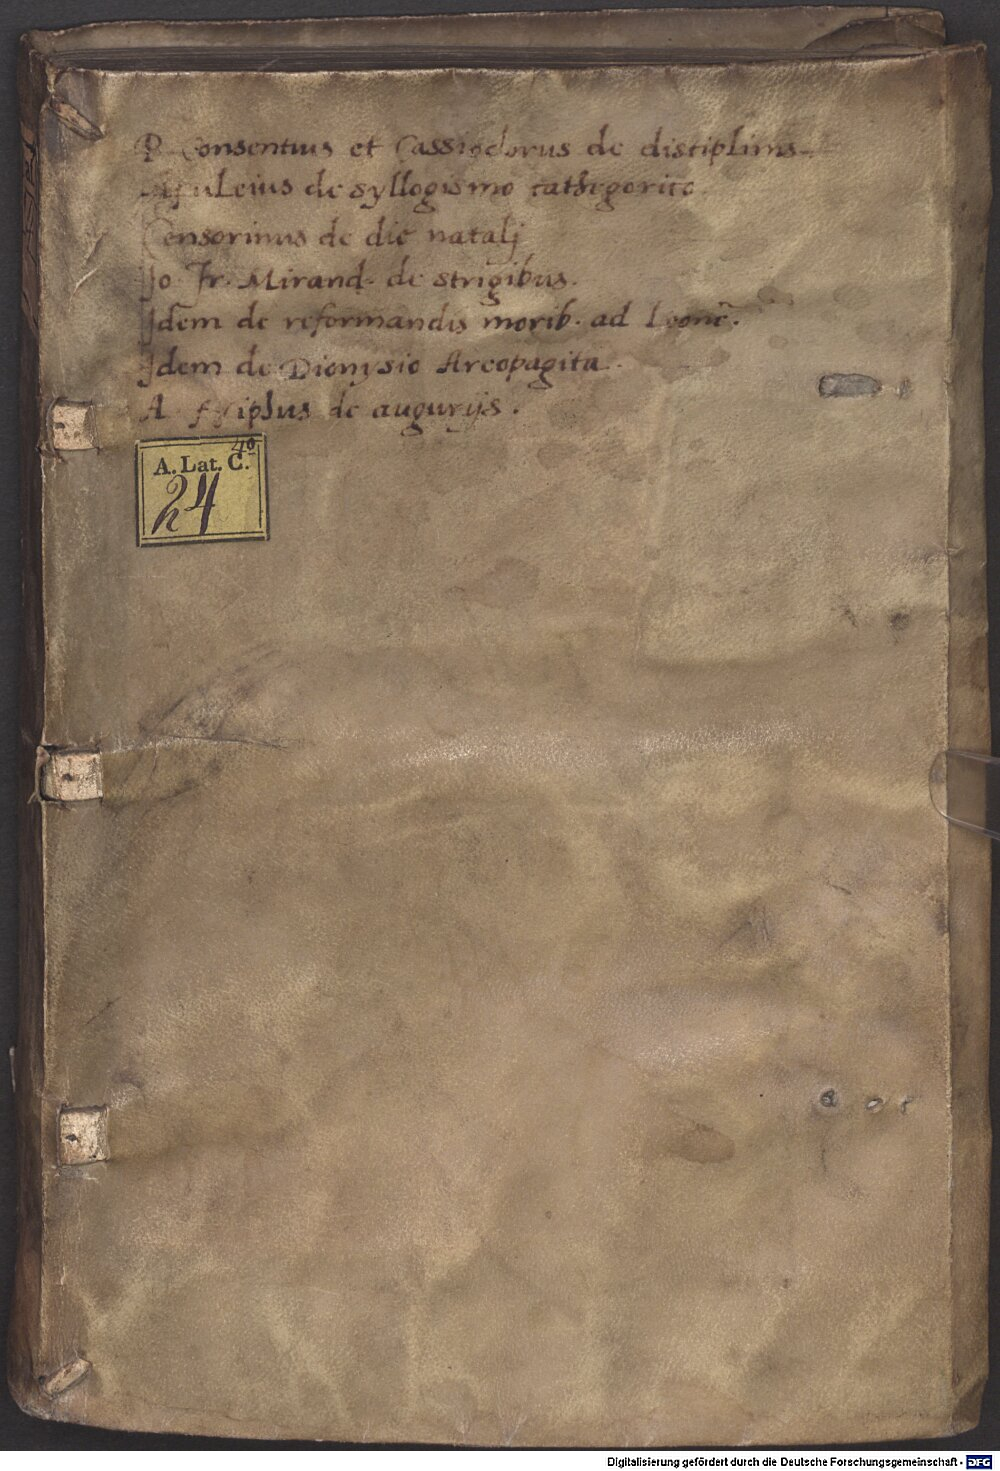 P. Consentius et Cassiodorus de disciplinis
Apuleius de syllogismo cathegorico
Censorinus de die natalj
Jo. Fr. Mirand. de strigibus.
Jdem de reformandis morib. ad Leonē.
Jdem de Dionysio Areopagita.
A de augurijs.
4º
A. Lat. C.
24
Digitalisierung gefördert durch die Deutsche Forschungsgemeinschaft - DFG